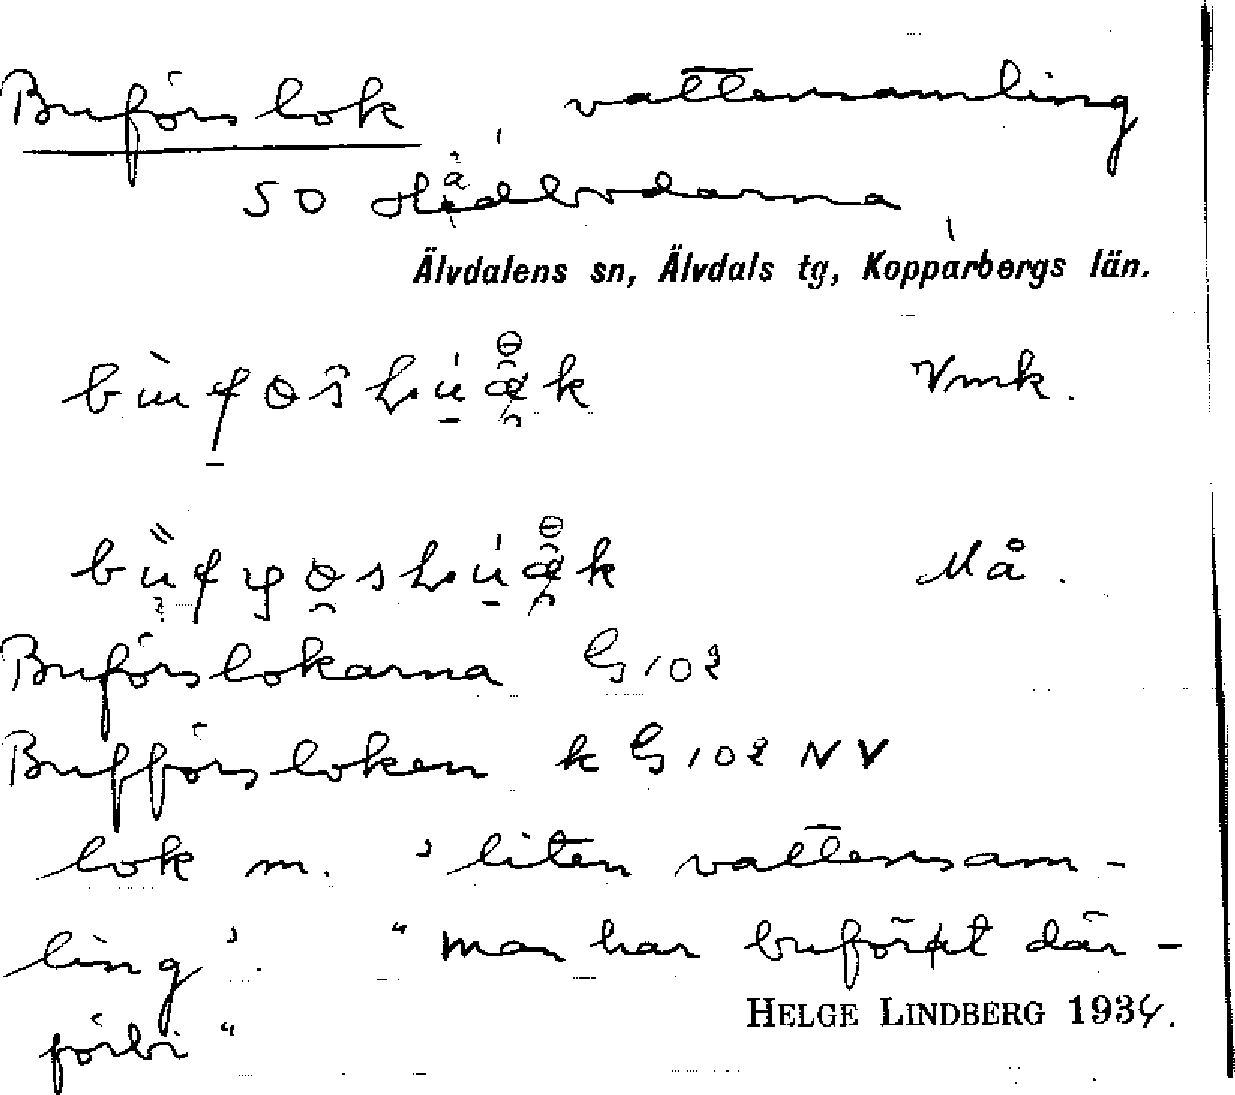 Buförslok vattensamling
SO
Älvdalens sn, Älvdals tg, Kopparbergs län.
Vmk.
Må.
Buförslokarna G 102
Bufförsloken k G 102 NV
lok m. ’liten vattensam-
ling’. “man har bufört där-
förbi“
HELGE LINDBERG 1934.